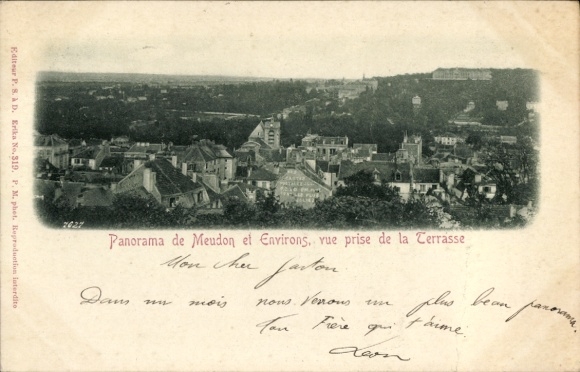 Editeur P. S. à D. Erika No. 319. P. M. phot. Reproduction interdite
7627
Panorama de Meudon et Environs, vue prise de la Terrasse
Mon cher Gaston
Dans un mois nous verrons un plus beau panorama.
Ton Frère qui t'aime.
Léon